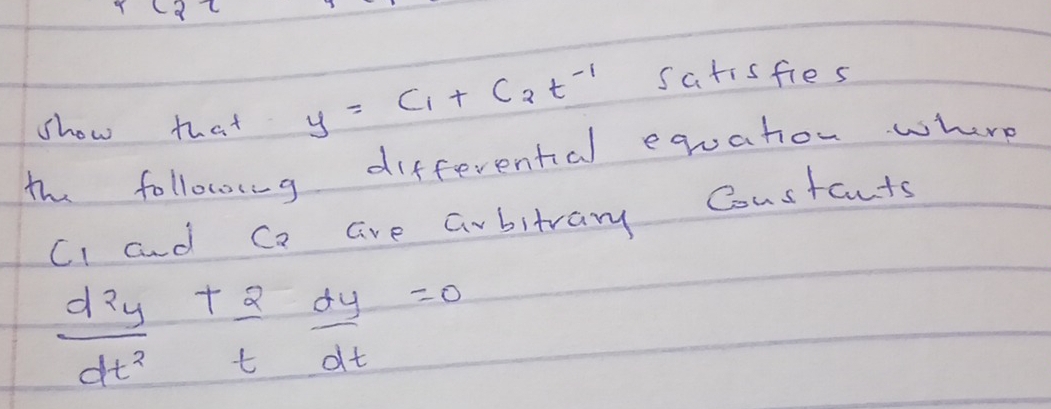 show that y = C1 + C2t⁻¹ satisfies
the following differential equation where
C1 and C2 are arbitrary constants
d²y/dt² + 2/t dy/dt = 0